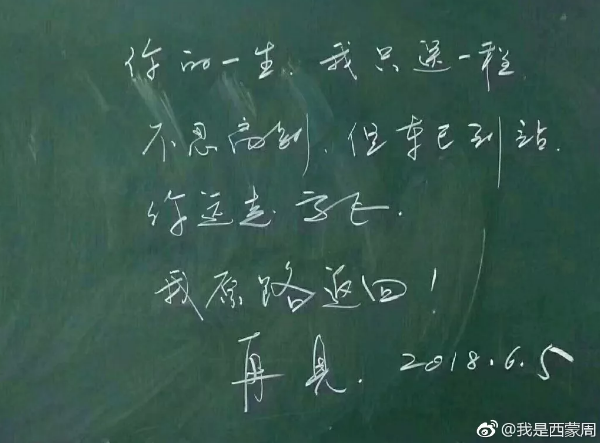 你的一生、我只送一程.
不忍离别、但车已到站.
你远走高飞.
我原路返回！
再见. 2018.6.5
@我是西蒙周